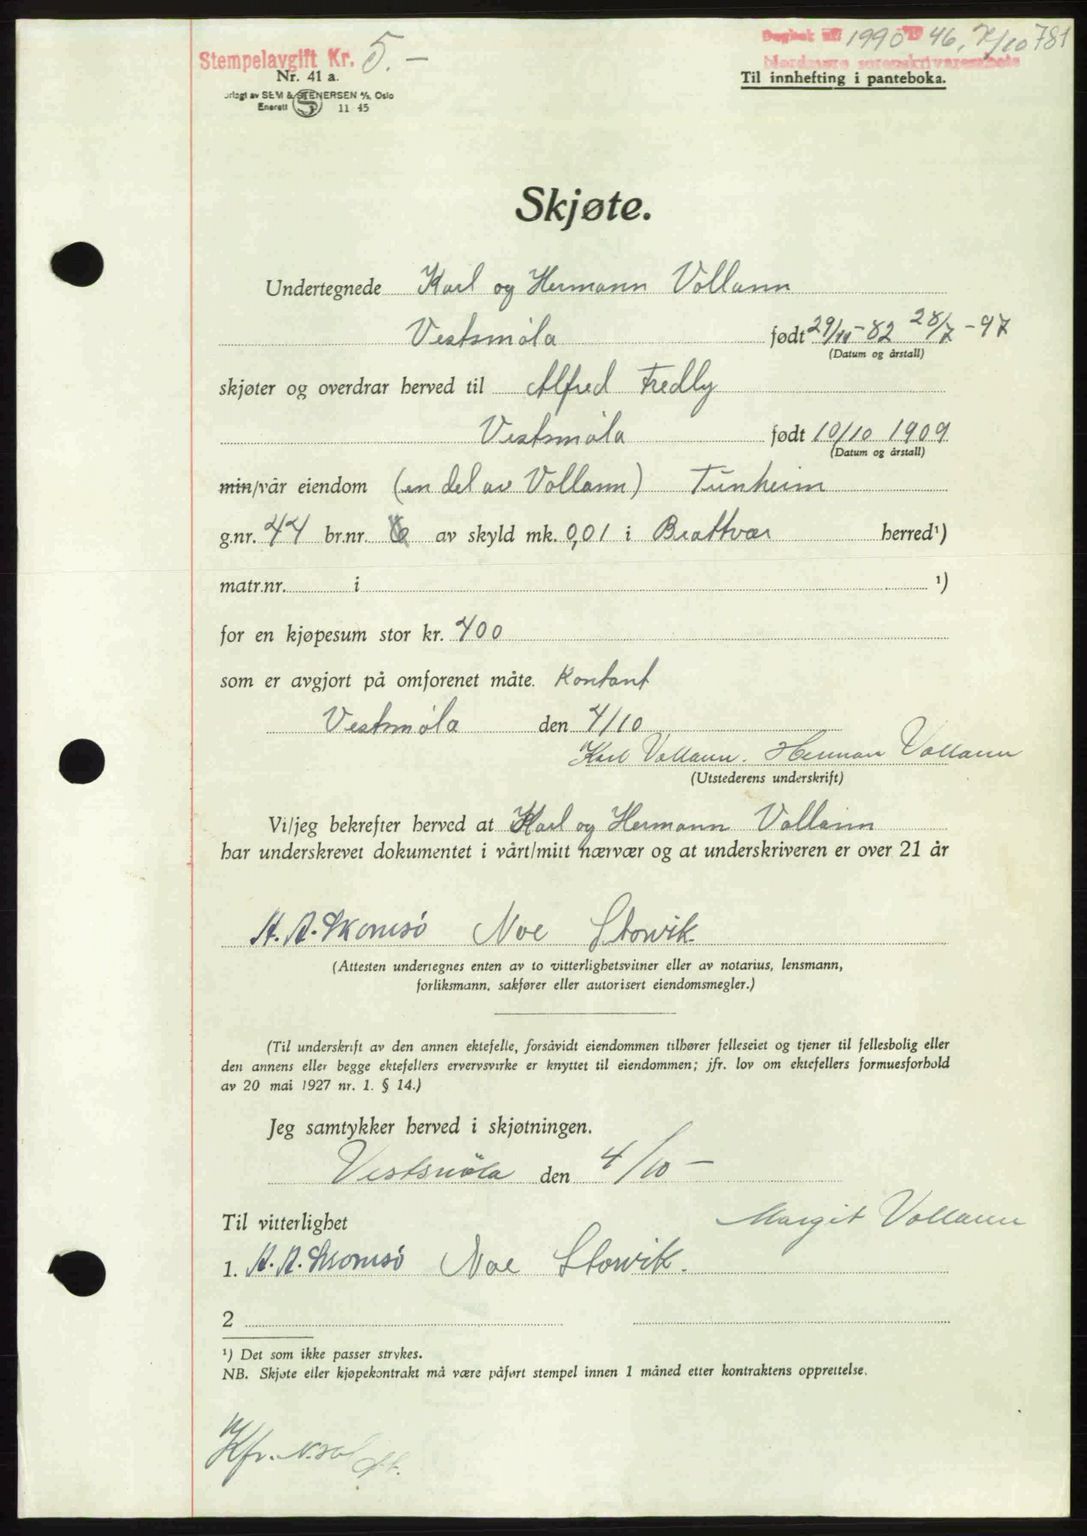 Stempelavgift Kr. 5.-
Dagbok nr. 1990 19 46, 7/10 781
Nordmøre sorenskriverembete
Nr. 41 a.
Til innhefting i panteboka.
orlagt av SEM & STENERSEN A/S, Oslo
Enerett S 11 45
Skjøte.
Undertegnede Karl og Hermann Vollann
Vestsmøla født 29/11-82 28/7-97
(Datum og årstall)
skjøter og overdrar herved til Alfred Fredly
Vestsmøla født 10/10 1909
(Datum og årstall)
min/vår eiendom (en del av Vollann) Tunheim
g.nr. 44 br.nr. av skyld mk. 0,01 i Brattvær herred¹)
matr.nr. i ¹)
for en kjøpesum stor kr. 400
som er avgjort på omforenet måte. Kontant
Vestsmøla den 4/10
Karl Vollann. Herman Vollann
(Utstederens underskrift)
Vi/jeg bekrefter herved at Karl og Hermann Vollann
har underskrevet dokumentet i vårt/mitt nærvær og at underskriveren er over 21 år
A. A. Skomsø Noe Storvik.
(Attesten undertegnes enten av to vitterlighetsvitner eller av notarius, lensmann,
forliksmann, sakfører eller autorisert eiendomsmegler.)
(Til underskrift av den annen ektefelle, forsåvidt eiendommen tilhører felleseiet og tjener til fellesbolig eller
den annens eller begge ektefellers ervervsvirke er knyttet til eiendommen; jfr. lov om ektefellers formuesforhold
av 20 mai 1927 nr. 1. § 14.)
Jeg samtykker herved i skjøtningen.
Vestsmøla den 4/10-
Til vitterlighet Margit Vollann
1. A. A. Skomsø Noe Storvik.
2
¹) Det som ikke passer strykes.
NB. Skjøte eller kjøpekontrakt må være påført stempel innen 1 måned etter kontraktens opprettelse.